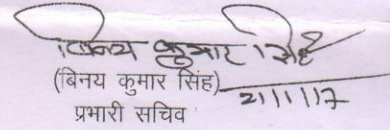 बिनय कुमार सिंह
(बिनय कुमार सिंह)
2/11/17
प्रभारी सचिव